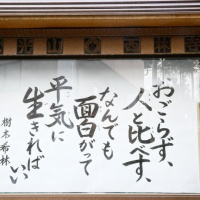 おごらず、
人と比べず、
なんでも
面白がって
平気に
生きれば
いい
樹木希林